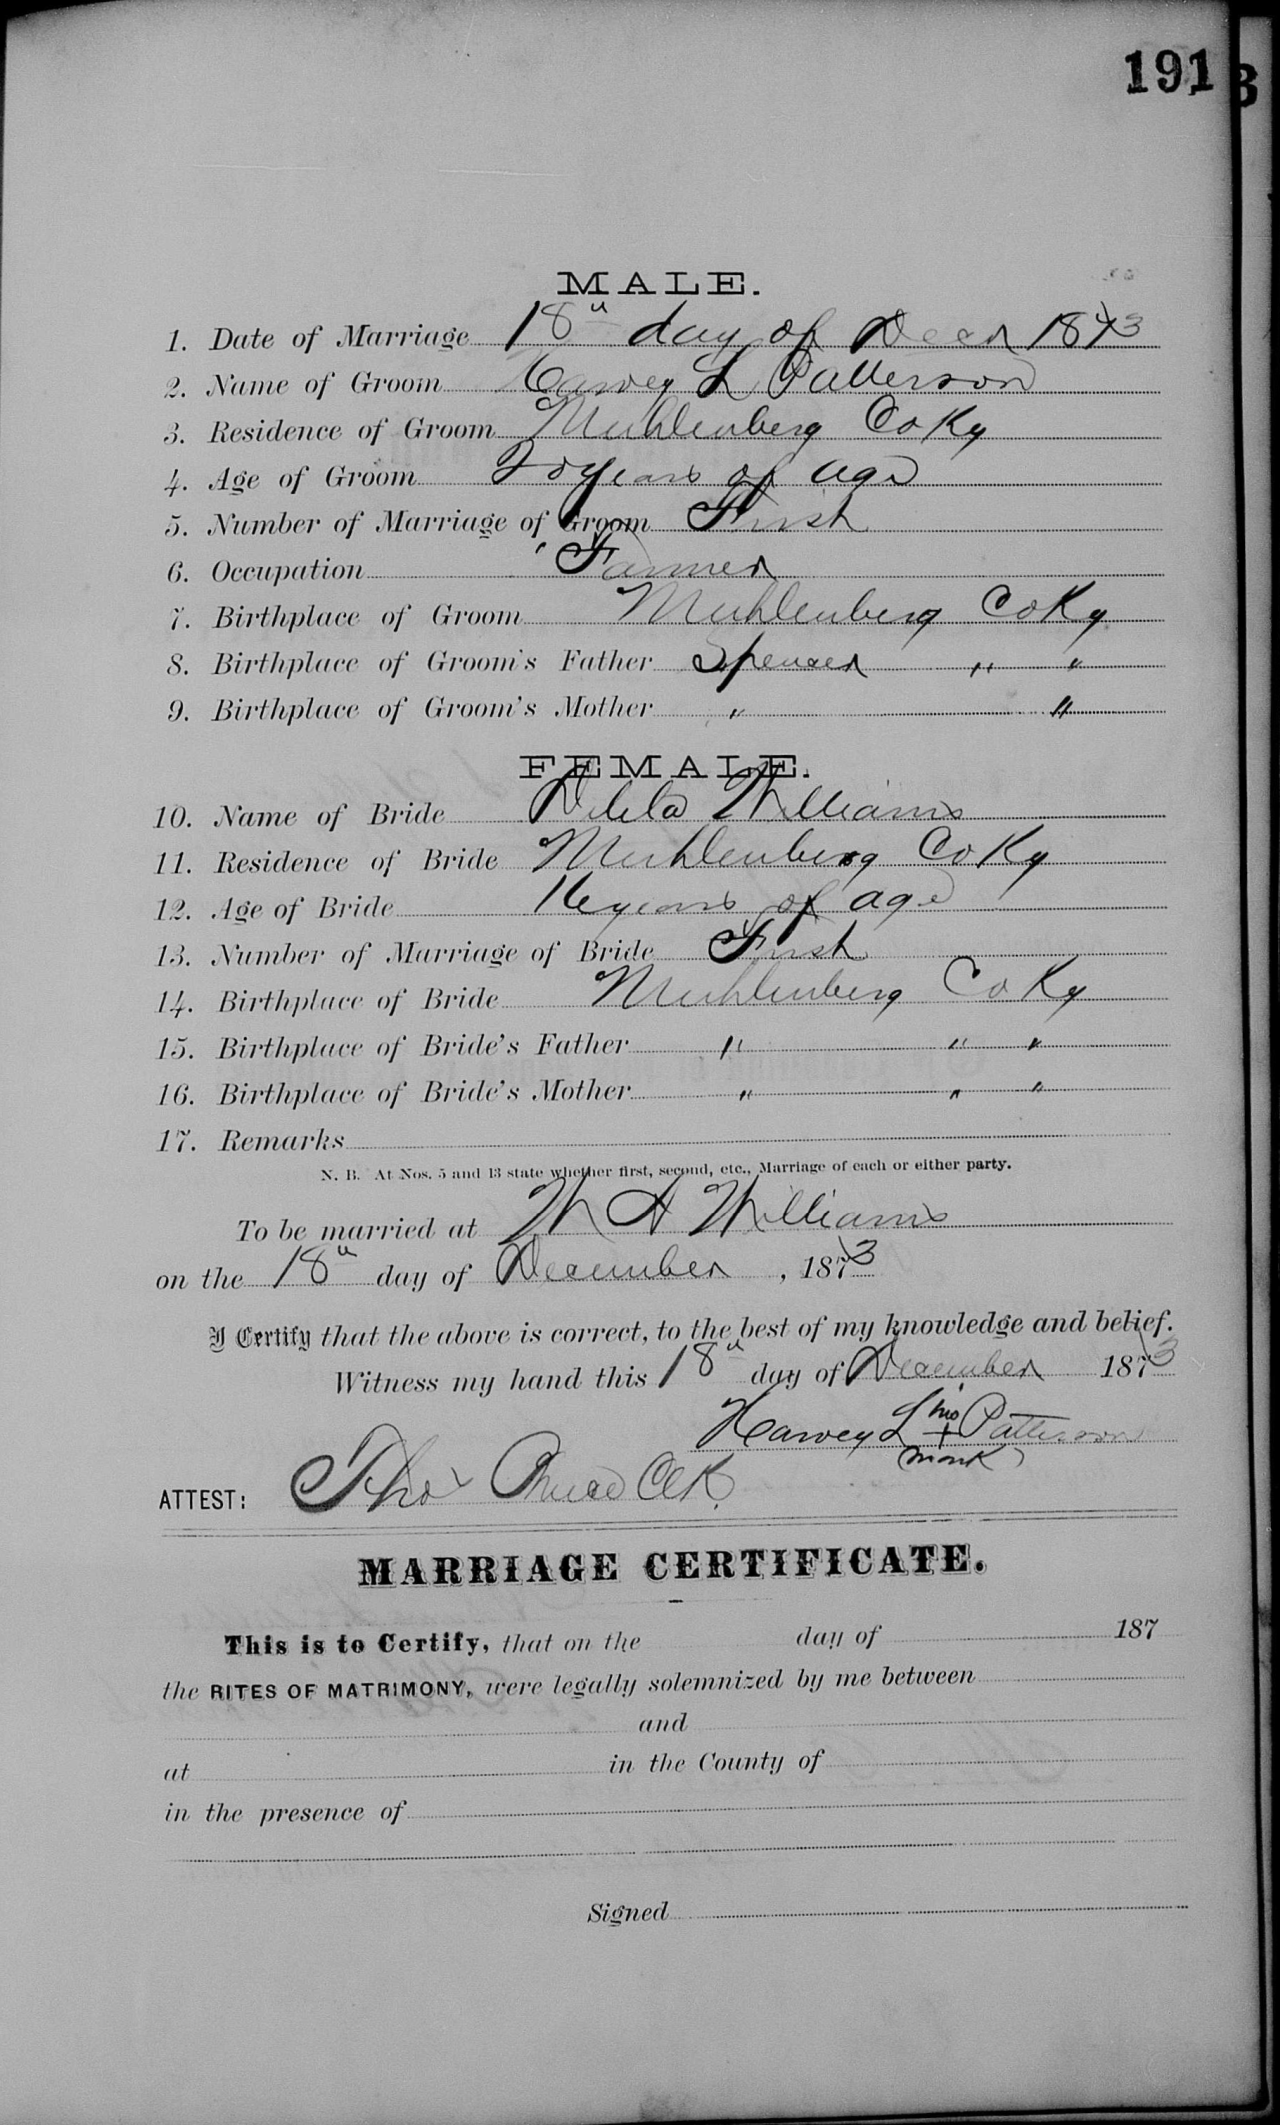 191
MALE.
1. Date of Marriage 18th day of Decr 1873
2. Name of Groom Harvey L Patterson
3. Residence of Groom Muhlenberg Co Ky
4. Age of Groom 20 years of age
5. Number of Marriage of Groom First
6. Occupation Farmer
7. Birthplace of Groom Muhlenberg Co Ky
8. Birthplace of Groom's Father Spencer " "
9. Birthplace of Groom's Mother " "
FEMALE.
10. Name of Bride Delila Williams
11. Residence of Bride Muhlenberg Co Ky
12. Age of Bride 16 years of age
13. Number of Marriage of Bride First
14. Birthplace of Bride Muhlenberg Co Ky
15. Birthplace of Bride's Father " " "
16. Birthplace of Bride's Mother " " "
17. Remarks
N. B. At Nos. 5 and 13 state whether first, second, etc., Marriage of each or either party.
To be married at W A Williams
on the 18th day of December, 1873
I Certify that the above is correct, to the best of my knowledge and belief.
Witness my hand this 18th day of December 1873
Harvey L his + Patterson
mark
ATTEST: Thos Bruce Clk.
MARRIAGE CERTIFICATE.
This is to Certify, that on the day of 187
the RITES OF MATRIMONY, were legally solemnized by me between
and
at in the County of
in the presence of
Signed